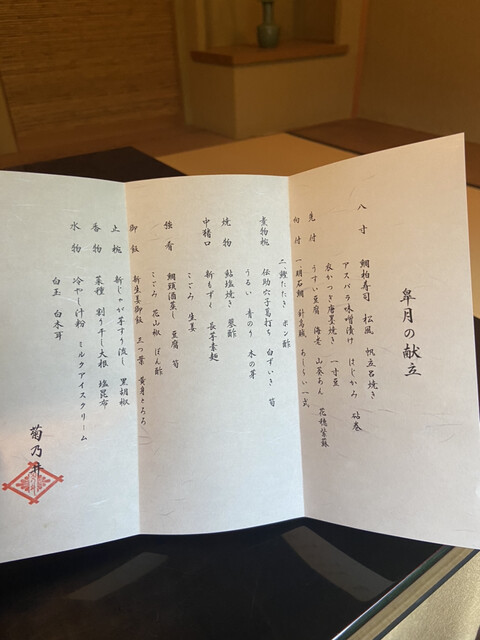 皐月の献立
八寸 鯛柏寿司 松風 帆立呂焼き
アスパラ味噌漬け はじかみ 砧巻
衣かつぎ唐墨焼き 一寸豆
先付 うすい豆腐 海老 山葵あん 花穂紫蘇
向付 一、明石鯛 針烏賊 あしらい一式
二、鰹たたき ポン酢
煮物椀 伝助穴子葛打ち 白ずいき 筍
うるい 青のり 木の芽
焼物 鮎塩焼き 蓼酢
中猪口 新もずく 長芋素麺
こごみ 生姜
強肴 鯛頭酒蒸し 豆腐 筍
こごみ 花山椒 ぽん酢
御飯 新生姜御飯 三つ葉 黄身とろろ
止椀 新じゃが芋すり流し 黒胡椒
香物 菜種 割り干し大根 塩昆布
水物 冷やし汁粉 ミルクアイスクリーム
白玉 白木耳
菊乃井